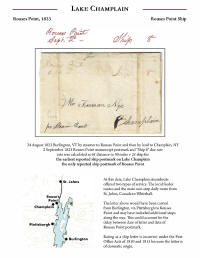 LAKE CHAMPLAIN
Rouses Point, 1823
Rouses Point Ship
Rouses Point
Sept. 2
Ship
8
Champlain
24 August 1823 Burlington, VT by steamer to Rouses Point and then by land to Champlain, NY
2 September 1823 Rouses Point manuscript postmark and "Ship 8" due rate
the earliest reported ship postmark on Lake Champlain
the only reported ship postmark of Rouses Point
St. Johns
Rouses Point
Champlain
Plattsburgh
Burlington
At this date, Lake Champlain steamboats
offered two types of service. The local feeder
routes and the main non-stop daily route from
St. Johns, Canada to Whitehall.
The letter above would have been carried
from Burlington, via Plattsburgh to Rouses
Point and may have included additional stops
along the way. This could account for the
delay between date of letter and date of
Rouses Point postmark.
Rating as a ship letter is incorrect; under the Post
Office Acts of 1810 and 1815 because the letter is
of domestic origin.